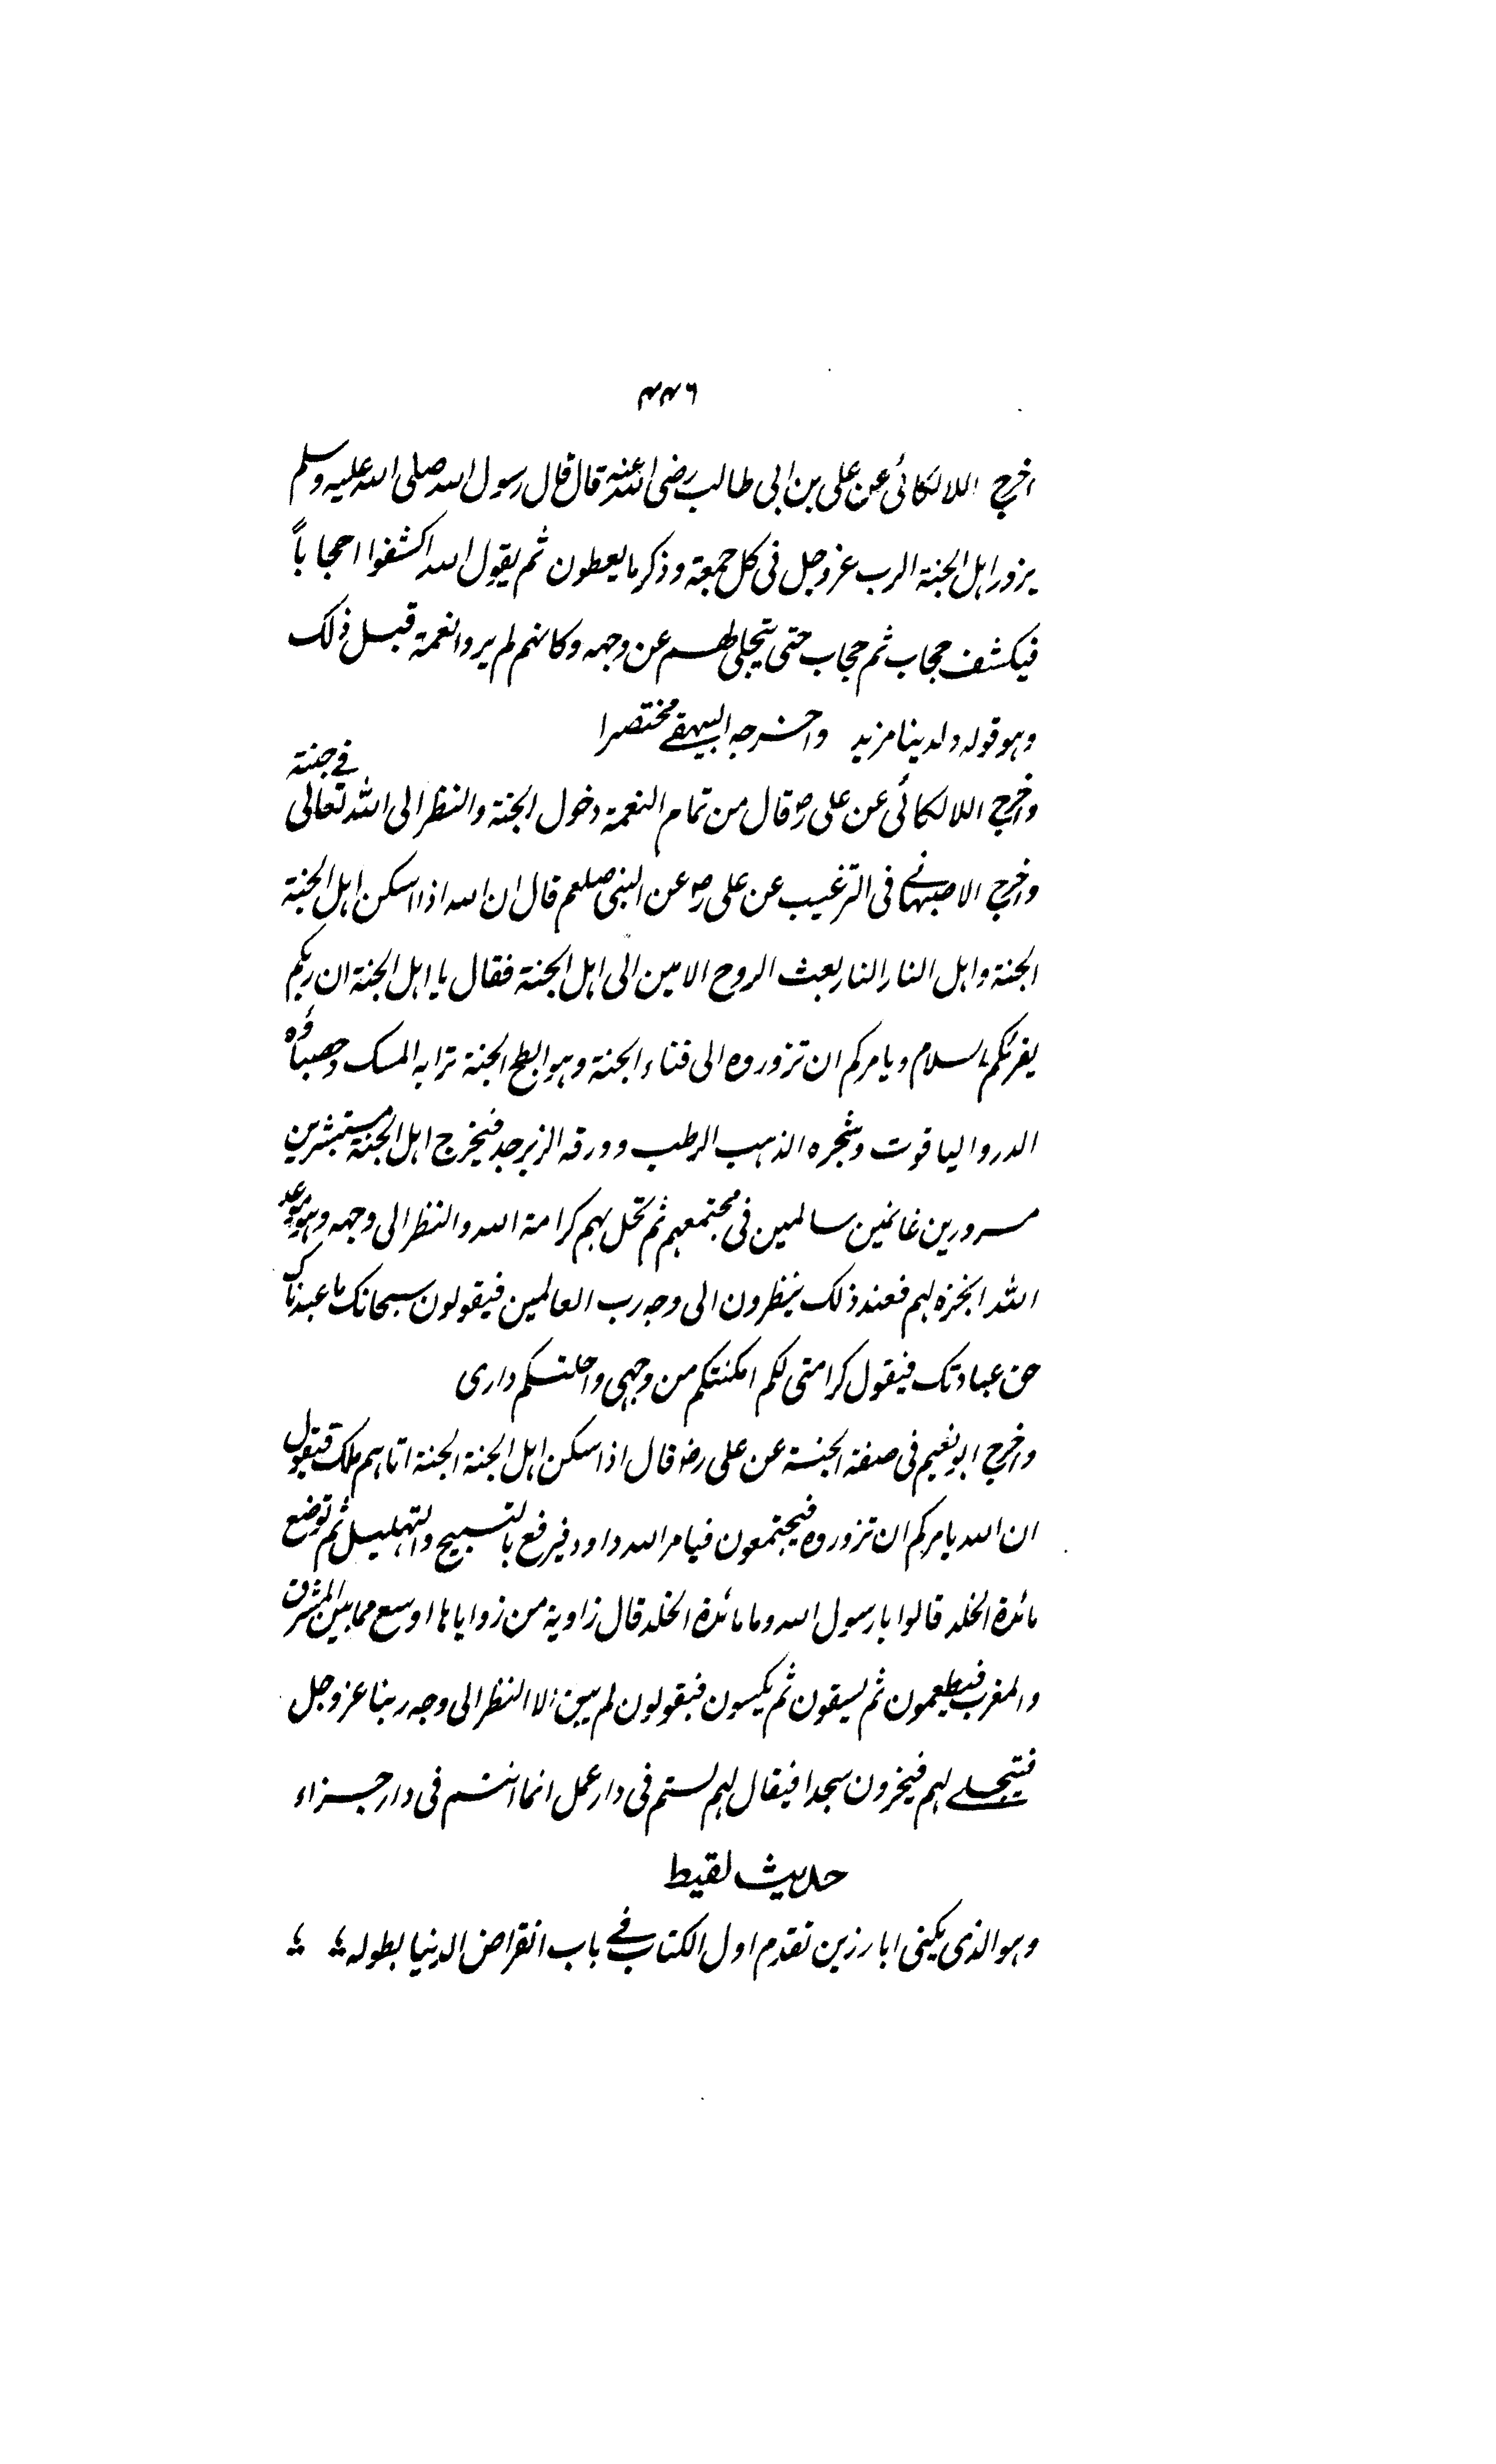 ٤٤٦
اخرج اللالكائى عن على بن ابى طالب رضى الله عنه قال قال رسول الله صلى الله عليه وسلم
يزور اهل الجنة الرب عز وجل فى كل جمعة وذكر ما يعطون ثم يقول الله اكشفوا احجاباً
فيكشف حجاب ثم حجاب حتى يتجلى لهم عن وجهه وكانهم لم يروا نعمة قبل ذلك
وهو قوله ولدينا مزيد واخرجه البيهقے مختصرا
واخرج اللالكائى عن على رض قال من تمام النعمة دخول الجنة والنظر الى الله تعالى فے جنته
واخرج الاصبهانے فى الترغيب عن على رض عن النبى صلعم قال ان الله اذا اسكن اهل الجنة
الجنة واهل النار النار بعث الروح الامين الى اهل الجنة فقال يا اهل الجنة ان ربكم
يقرئكم السلام ويامركم ان تزوروه الى فناء الجنة وهو ابطح الجنة ترابه المسك وحصباؤه
الدر والياقوت وشجره الذهب الرطب وورقه الزبرجد فيخرج اهل الجنة مستبشرين
مسرورين غانمين سالمين فى مجتمعهم ثم تحل بهم كرامة الله والنظر الى وجهه وهو موعد
الله انجزه لهم فعند ذلك ينظرون الى وجه رب العالمين فيقولون سبحانك ما عبدناك
حق عبادتك فيقول كرامتى لكم امكنتكم من وجهى واحلتكم دارى
واخرج ابو نعيم فى صفة الجنة عن على رض قال اذا سكن اهل الجنة الجنة اتاهم ملك فيقول
ان الله يامركم ان تزوروه فيجتمعون فيامر الله داود فيرفع بالتسبيح والتهليل ثم توضع
مائدة الخلد قالوا يا رسول الله وما مائدة الخلد قال زاوية من زواياها اوسع مما بين المشرق
والمغرب فيطعمون ثم يسقون ثم يكسون فيقولون لم يبق الا النظر الى وجه ربنا عز وجل
فيتجلے لهم فيخرون سجدا فيقال لهم لستم فى دار عمل انما انتم فى دار جزاء
حديث لقيط
وهو الذى يكنى ابا رزين تقدم اول الكتاب فے باب انقراض الدنيا بطوله